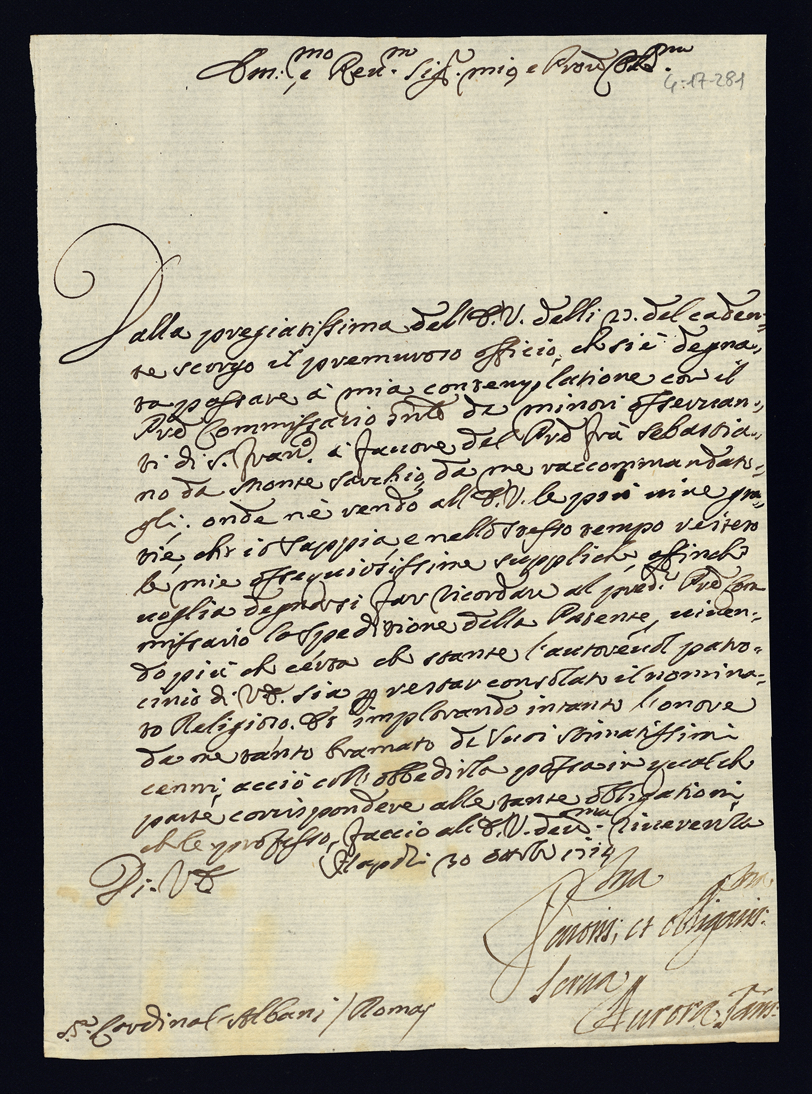 Em.mo e Reu.mo Sig.r mio e Pron Col.mo
4-17-281
Dalla pregiatissima dell'E.V. delli 23. del caden-
te scorgo il premuroso officio, ch si è degna-
ta passare à mia contemplatione con il
Prē Commissario de minori osseruan-
ti di S. Fran.co à fauore del Prē frà Sebastia-
no da Monte Sarchio, da me raccommandato-
gli; onde nè rendo all'E.V. le più uiue gra-
tie, ch'io sappia, e nello stesso tempo reitero
le mie ossequiosissime suppliche, affinche
uoglia degnarsi far ricordare al pred.o Prē Com
missario la spedizione della Patente, uiuen-
do più ch certa ch stante l'autoreuol patro-
cinio di V.E. sia p restar consolato il nomina-
to Religioso. Et implorando intanto l'onore
da me tanto bramato de Suoi stimatissimi
cenni, acciò coll'obbedirla possa in qualch
parte corrispondere alle tante obligationi,
ch le professo, faccio all'E.V. deu.ma riuerenza
Napoli 30 ottbre 1714
Di V.E.
Deuotis: et obligatis:
Serua
Aurora Sans:
S.r Cardinal Albani / Roma